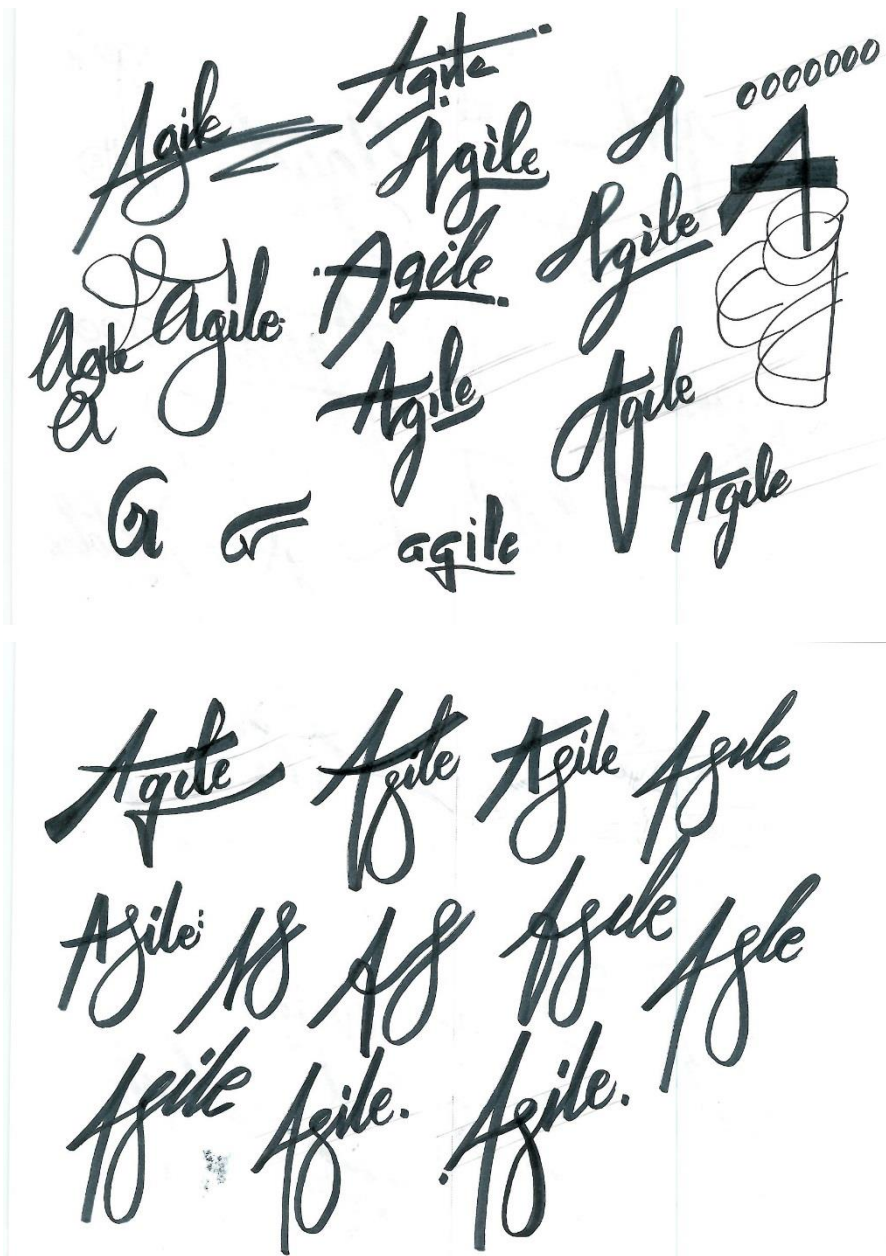 Agile
Agile
Agile
A
0000000
A
Agile
Agile
agile
Agile
a
Agile
Agile
Agile
a
a
agile
Agile Agile Agile Agile
Agile: Ag Ag Agile Agle
Agile Agile. Agile.